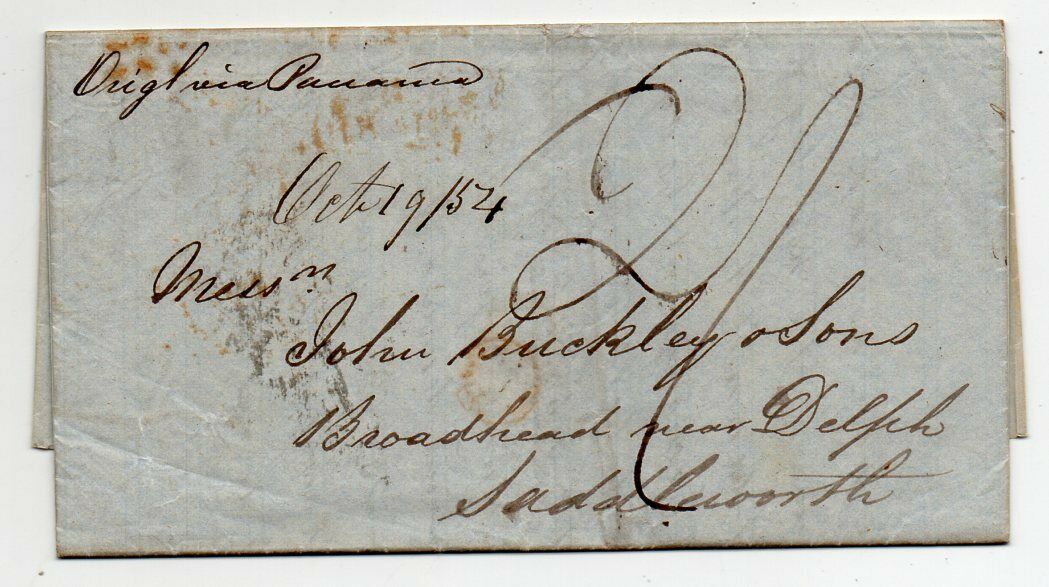 Origl via Panama
Oct 19/54
Messrs
John Buckley & Sons
Broadhead near Delph
Saddleworth
2/